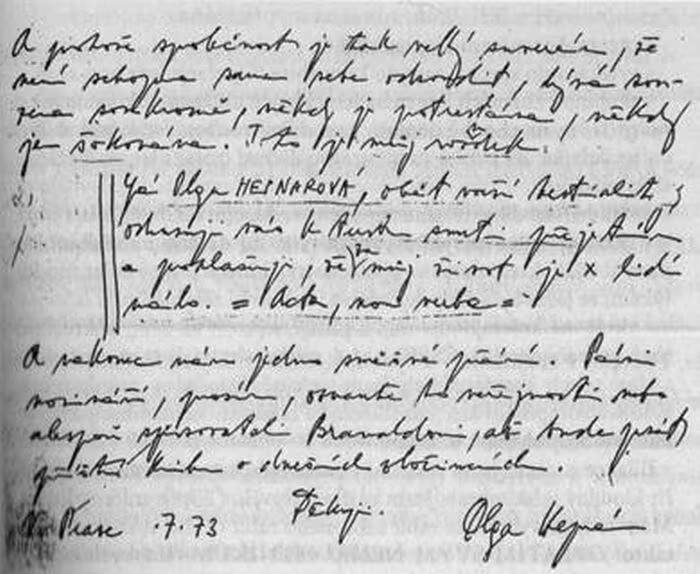 A protože společnost je tak velký suverén, že
není schopna sama sebe odsoudit, bývá sou-
zena soukromě, někdy je potrestána, někdy
jen šokována. Toto je můj
Já Olga HEPNAROVÁ, oběť vaší bestiality
odsuzuji vás k trestu smrti přejetím
a prohlašuji, že můj život je x lidí
málo. = Acta, non verba =
A nakonec mám jedno směšné přání. Páni
novináři, prosím, oznamte to veřejnosti nebo
alespoň spisovateli Branaldovi, ať bude psát
příště knihu o dnešních zločincích.
Děkuji.
Praze .7.73 Olga